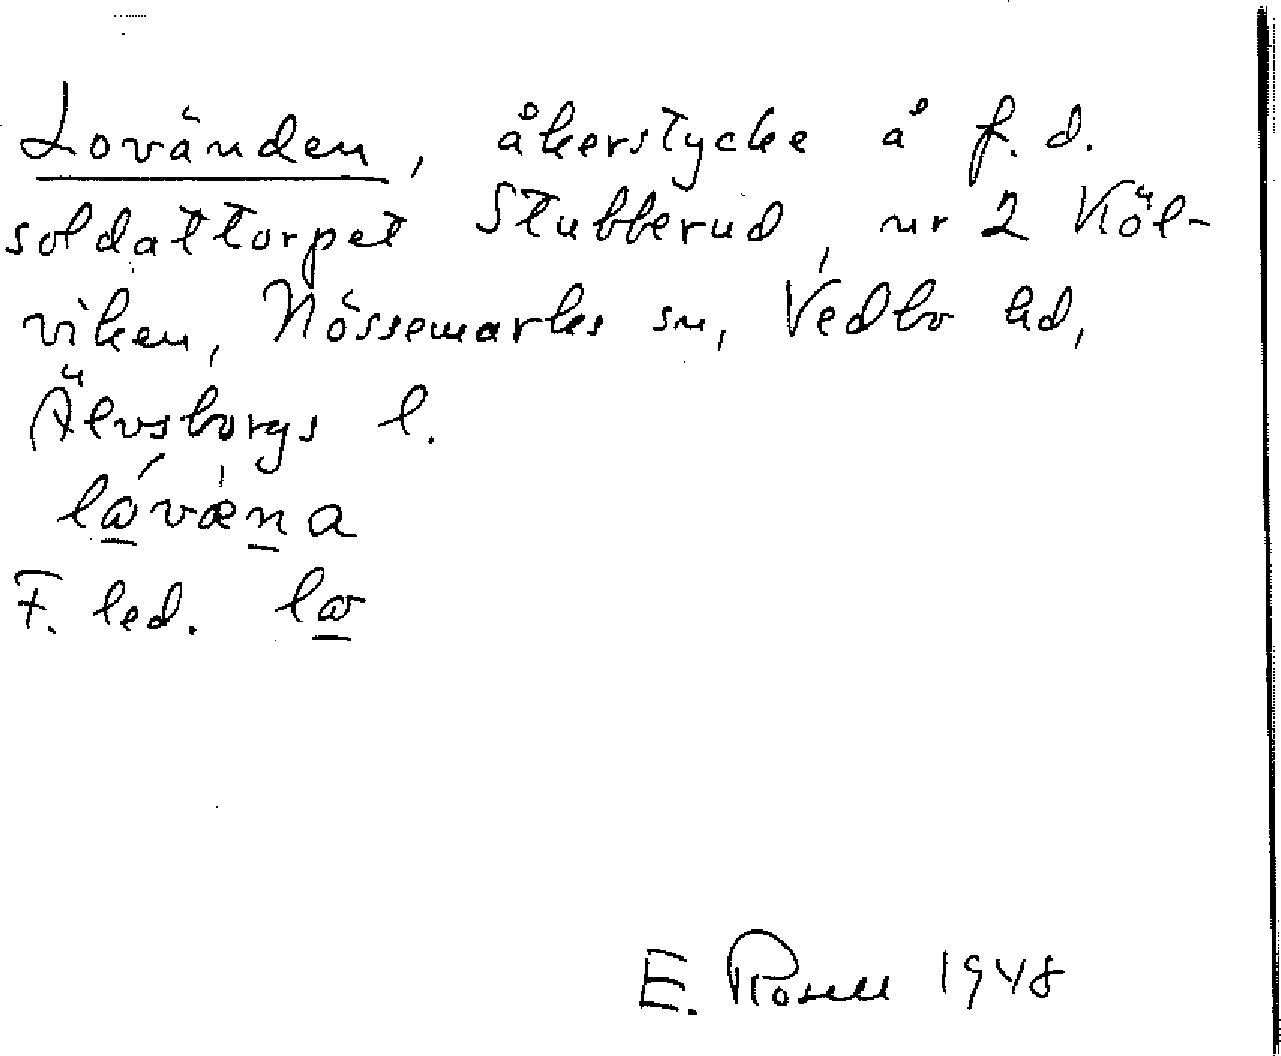 Lovänden, åkerstycke å f. d.
soldattorpet Stubberud, nr 2 Köl-
viken, Nössemarks sn, Vedbo hd,
Älvsborgs l.
F. led.
E. Rosell 1948